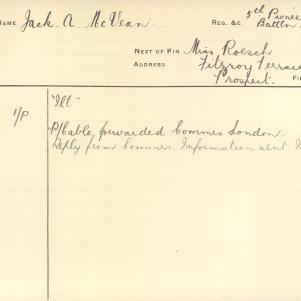 NAME Jack. A. McVean. REG. &C. 5th Pione
Battln.
NEXT OF KIN Miss Roesch
ADDRESS Fitzroy Terrace
Prospect. FI
"Ill"
1/P P/Cable, forwarded Commis London.
Reply from Commrs. Information sent